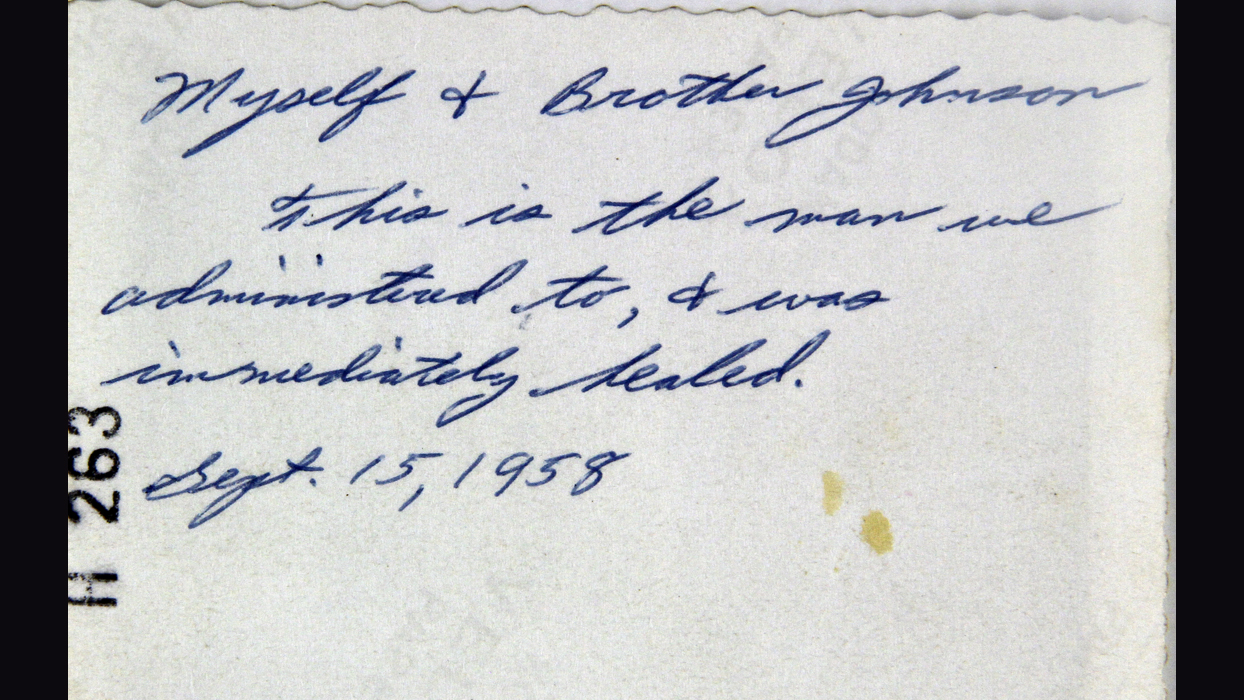 Myself & Brother Johnson
This is the man we
administered to, & was
immediately healed.
Sept. 15, 1958
H 263